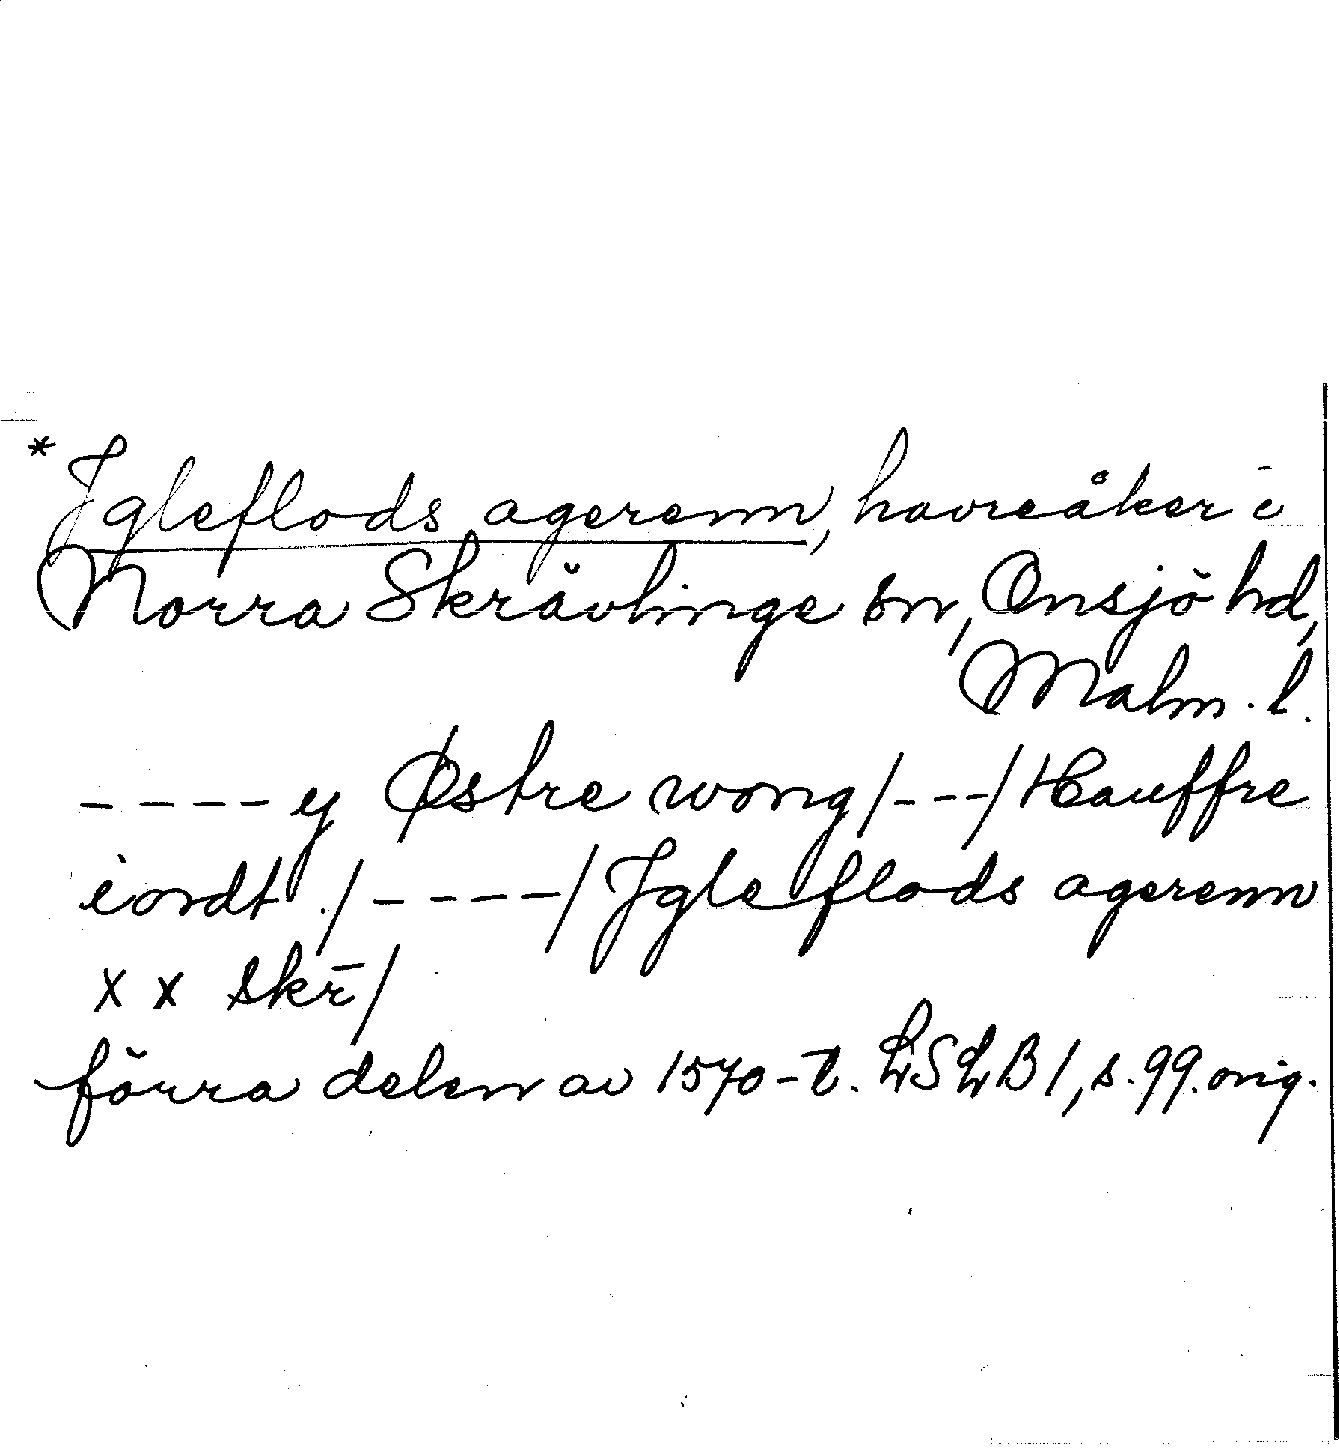 * Jgleflods agerenn, havreåker i
Norra Skrävlinge sn, Onsjö hd,
Malm. l.
---- y Østre wong /---/ Hauffre
iordt ./ ----/ Jgle flods agerenn
x x skr̄/
förra delen av 1570-t. LSLB 1, s. 99. orig.